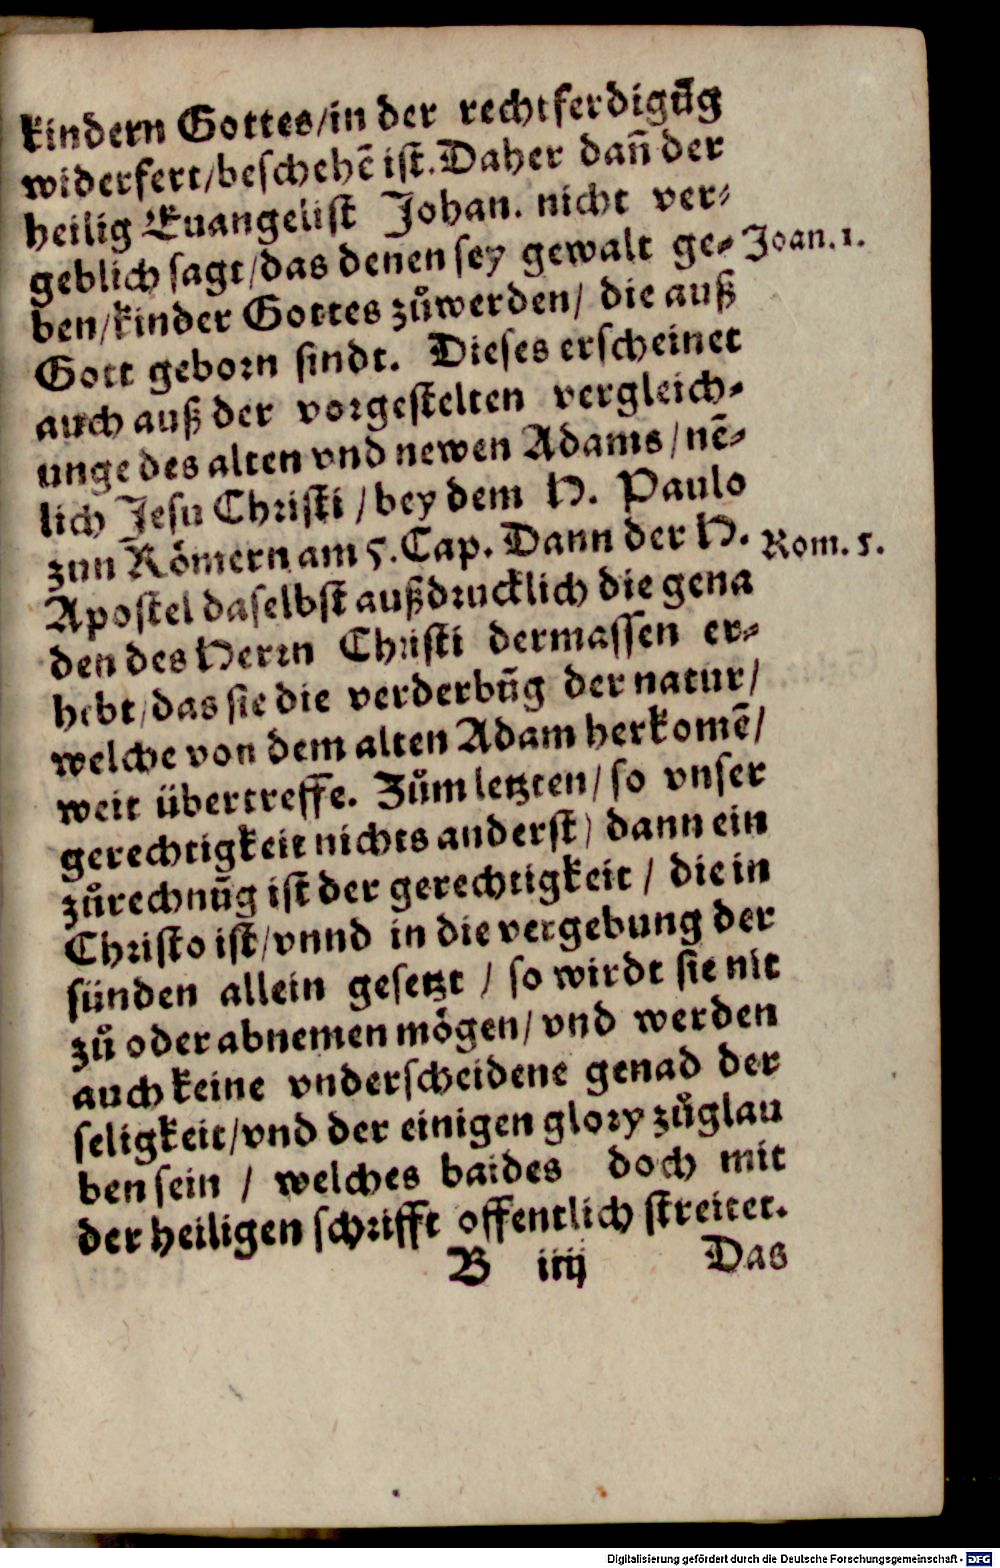 kindern Gottes/in der rechtferdigūg
widerfert/beschehē ist. Daher dañ der
heilig Euangelist Johan. nicht ver⸗
geblich sagt/das denen sey gewalt ge⸗
Joan. 1.
ben/kinder Gottes zůwerden/ die auß
Gott geborn sindt. Dieses erscheinet
auch auß der vorgestelten vergleich⸗
unge des alten vnd newen Adams/nē⸗
lich Jesu Christi/bey dem H. Paulo
zun Römern am 5. Cap. Dann der H.
Rom. 5.
Apostel daselbst außdrucklich die gena
den des Herrn Christi dermassen er⸗
hebt/das sie die verderbūg der natur/
welche von dem alten Adam herkomē/
weit übertreffe. Zům letzten/so vnser
gerechtigkeit nichts anderst) dann ein
zůrechnūg ist der gerechtigkeit/ die in
Christo ist/vnnd in die vergebung der
sünden allein gesetzt/ so wirdt sie nit
zů oder abnemen mögen/vnd werden
auch keine vnderscheidene genad der
seligkeit/vnd der einigen glory zůglau
ben sein/ welches baides doch mit
der heiligen schrifft offentlich streitet.
B iiij Das
Digitalisierung gefördert durch die Deutsche Forschungsgemeinschaft - DFG